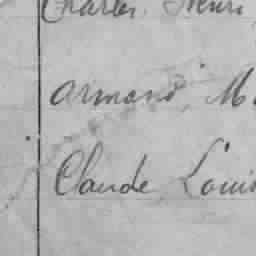 Charles, Henri
Armand, M
Claude Louis